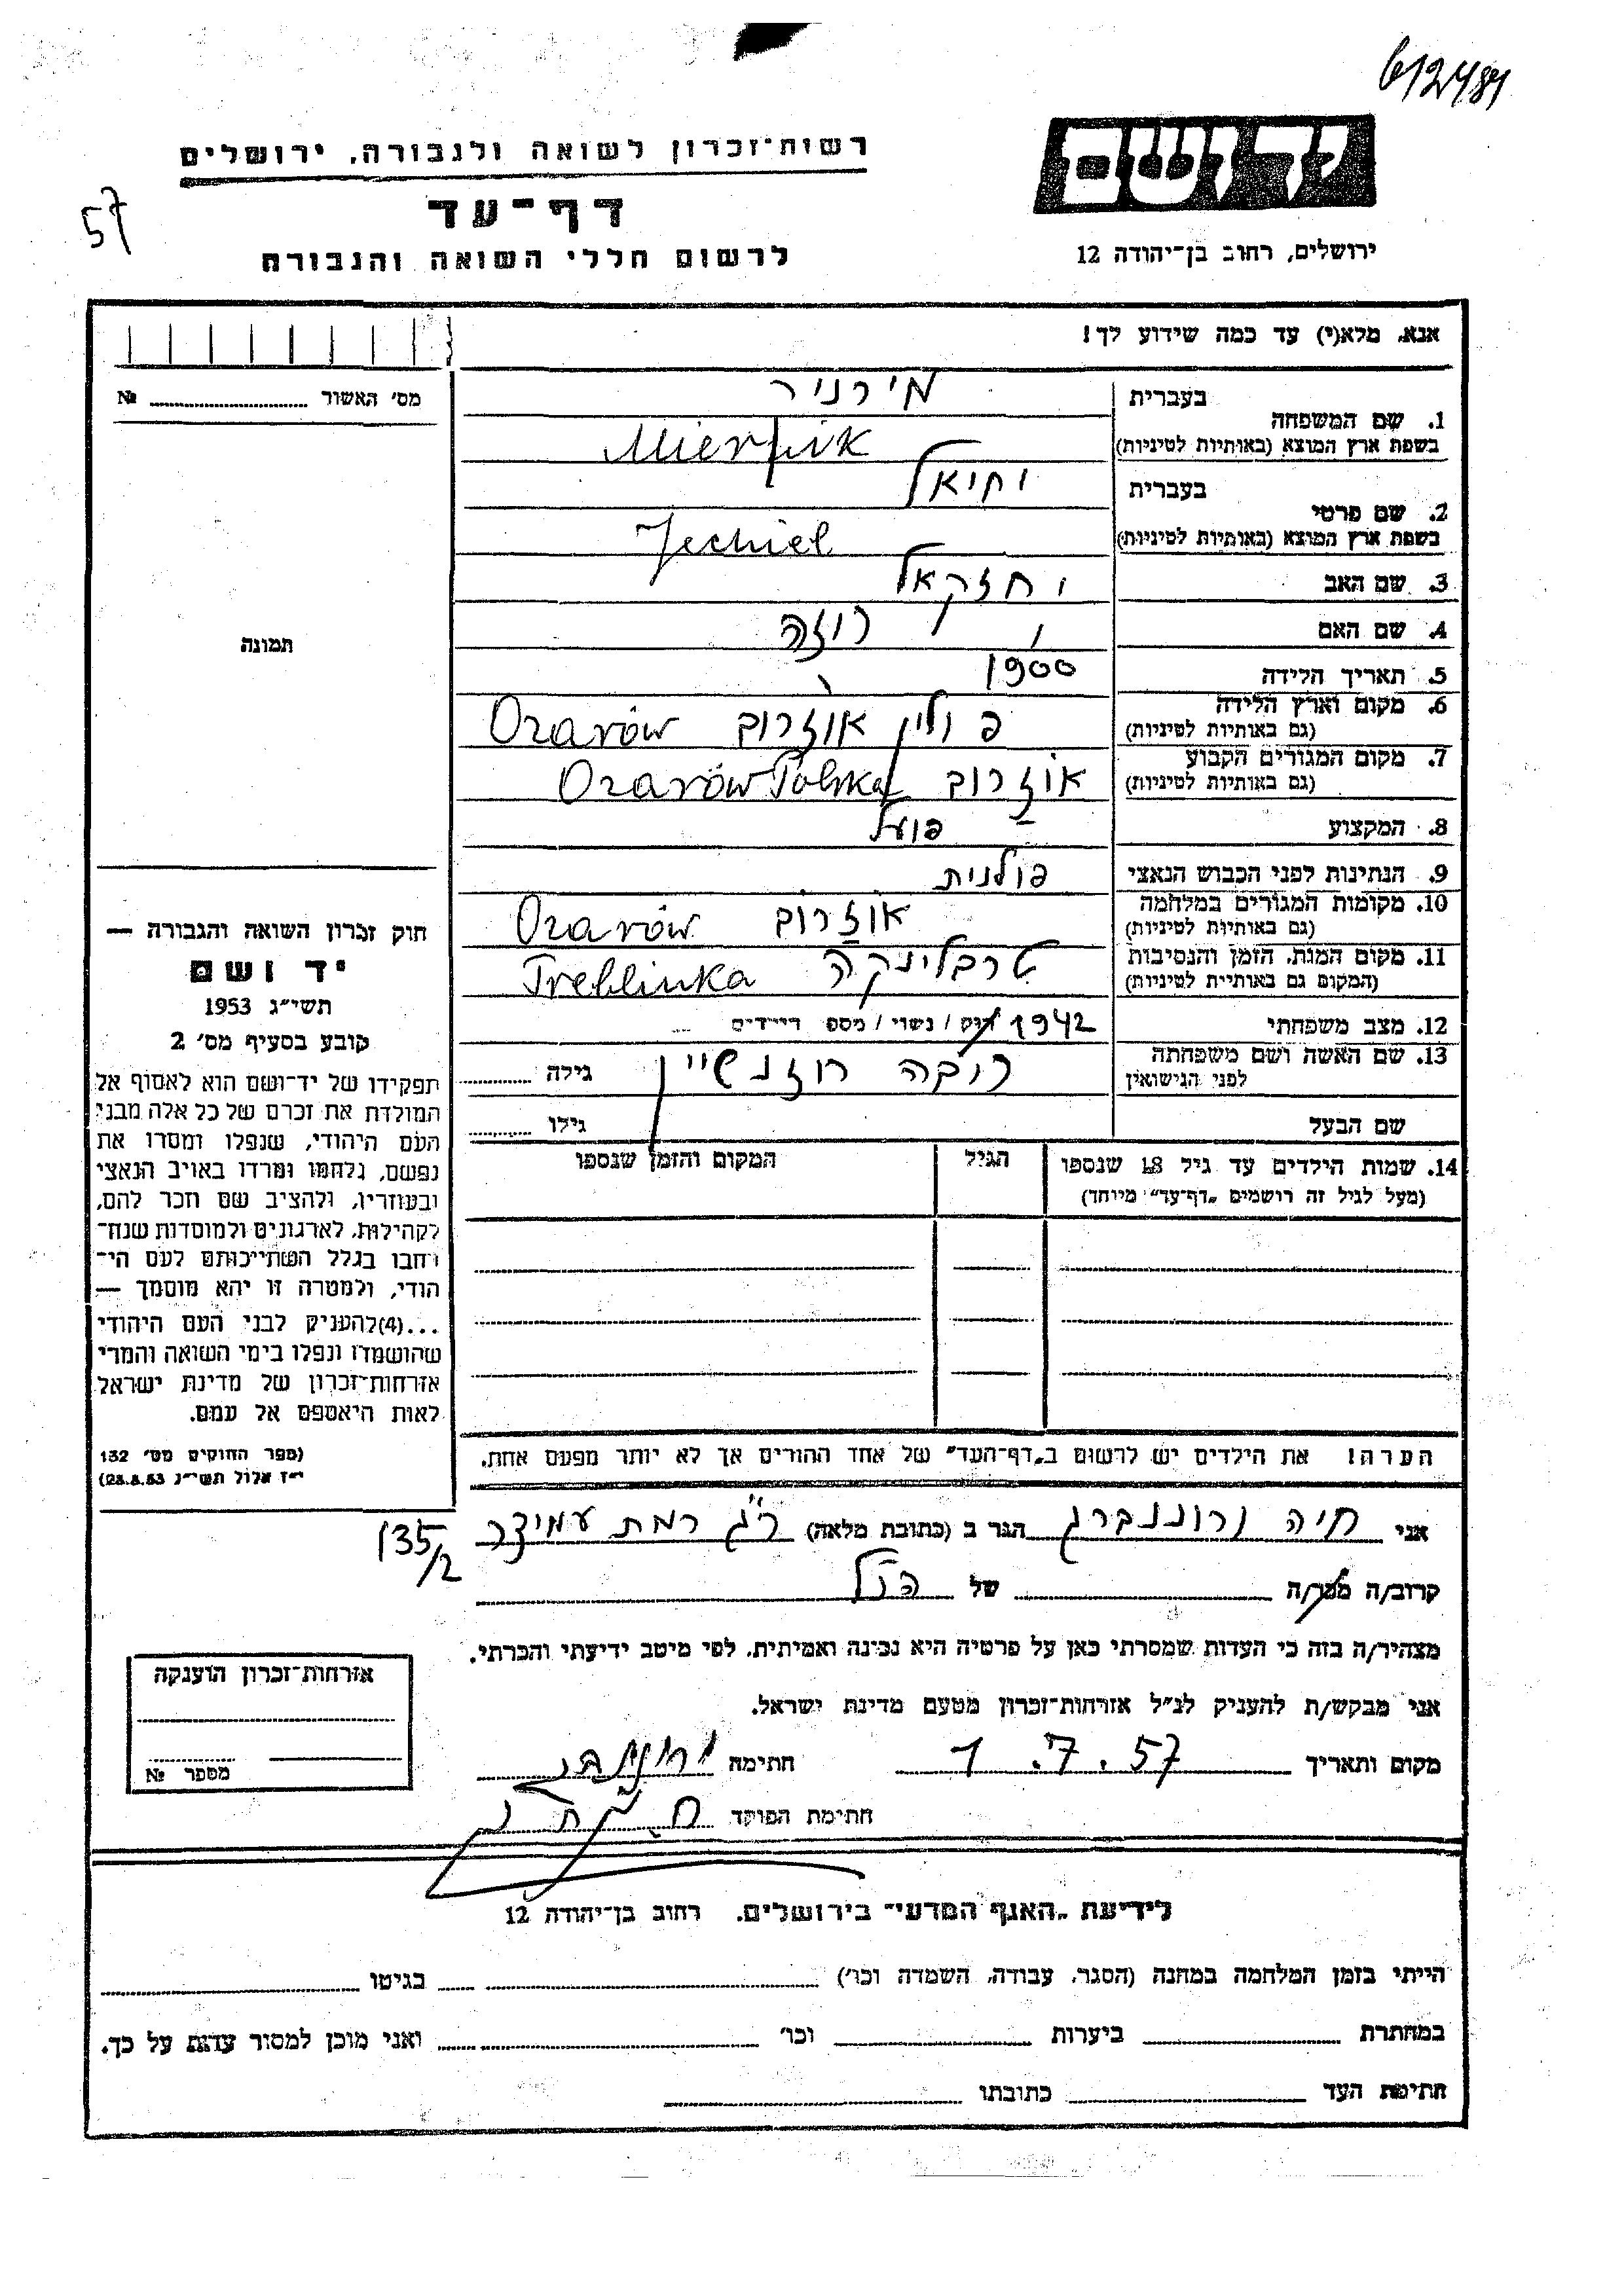 612481
יד ושם
רשות־זכרון לשואה ולגבורה, ירושלים
57
דף־עד
לרשום חללי השואה והגבורה
ירושלים, רחוב בן־יהודה 12
אנא, מלא(י) עד כמה שידוע לך!
מס׳ האשור № ........
תמונה
1. שם המשפחה
בעברית
בשפת ארץ המוצא (באותיות לטיניות)
Miernik
2. שם פרטי
בעברית יחיאל
בשפת ארץ המוצא (באותיות לטיניות) Jechiel
3. שם האב יחזקאל
4. שם האם רוזה
5. תאריך הלידה 1900
6. מקום וארץ הלידה (גם באותיות לטיניות) פולין אוזרוב Ozarów
7. מקום המגורים הקבוע (גם באותיות לטיניות) אוזרוב Ozarów Polska
8. המקצוע פועל
9. הנתינות לפני הכבוש הנאצי פולנית
10. מקומות המגורים במלחמה (גם באותיות לטיניות) אוזרוב Ozarów
11. מקום המות, הזמן והנסיבות (המקום גם באותיות לטיניות) טרבלינקה Treblinka
1942
12. מצב משפחתי רווק / נשוי / מספר הילדים
13. שם האשה ושם משפחתה לפני הנישואין רבקה רוזנשיין גילה ........
שם הבעל גילו ........
14. שמות הילדים עד גיל 18 שנספו
(מעל לגיל זה רושמים „דף־עד” מיוחד)
הגיל
המקום והזמן שנספו
הערה! את הילדים יש לרשום ב„דף־העד” של אחד ההורים אך לא יותר מפעם אחת.
חוק זכרון השואה והגבורה —
יד ושם
תשי״ג 1953
קובע בסעיף מס׳ 2
תפקידו של יד־ושם הוא לאסוף אל
המולדת את זכרם של כל אלה מבני
העם היהודי, שנפלו ומסרו את
נפשם, נלחמו ומרדו באויב הנאצי
ובעוזריו, ולהציב שם וזכר להם,
לקהילות, לארגונים ולמוסדות שנח־
רבו בגלל השתייכותם לעם הי־
הודי, ולמטרה זו יהא מוסמך —
...(4) להעניק לבני העם היהודי
שהושמדו ונפלו בימי השואה והמרי
אזרחות־זכרון של מדינת ישראל
לאות היאספם אל עמם.
(ספר החוקים מס׳ 132
י״ז אלול תשי״ג 28.8.53)
אני חיה הגר ב (כתובת מלאה) ר״ג רמת עמידר 135/2
קרוב/ה מכר/ה ........ של הנ״ל
מצהיר/ה בזה כי העדות שמסרתי כאן על פרטיה היא נכונה ואמיתית, לפי מיטב ידיעתי והכרתי.
אני מבקש/ת להעניק לנ״ל אזרחות־זכרון מטעם מדינת ישראל.
מקום ותאריך 1.7.57 חתימה
חתימת הפוקד
אזרחות־זכרון הוענקה
מספר №
לידיעת „האגף המדעי” בירושלים, רחוב בן־יהודה 12
הייתי בזמן המלחמה במחנה (הסגר, עבודה, השמדה וכו׳) ........ בגיטו ........
במחתרת ........ ביערות ........ וכו׳ ........ ואני מוכן למסור עדות על כך.
חתימת העד ........ כתובתו ........